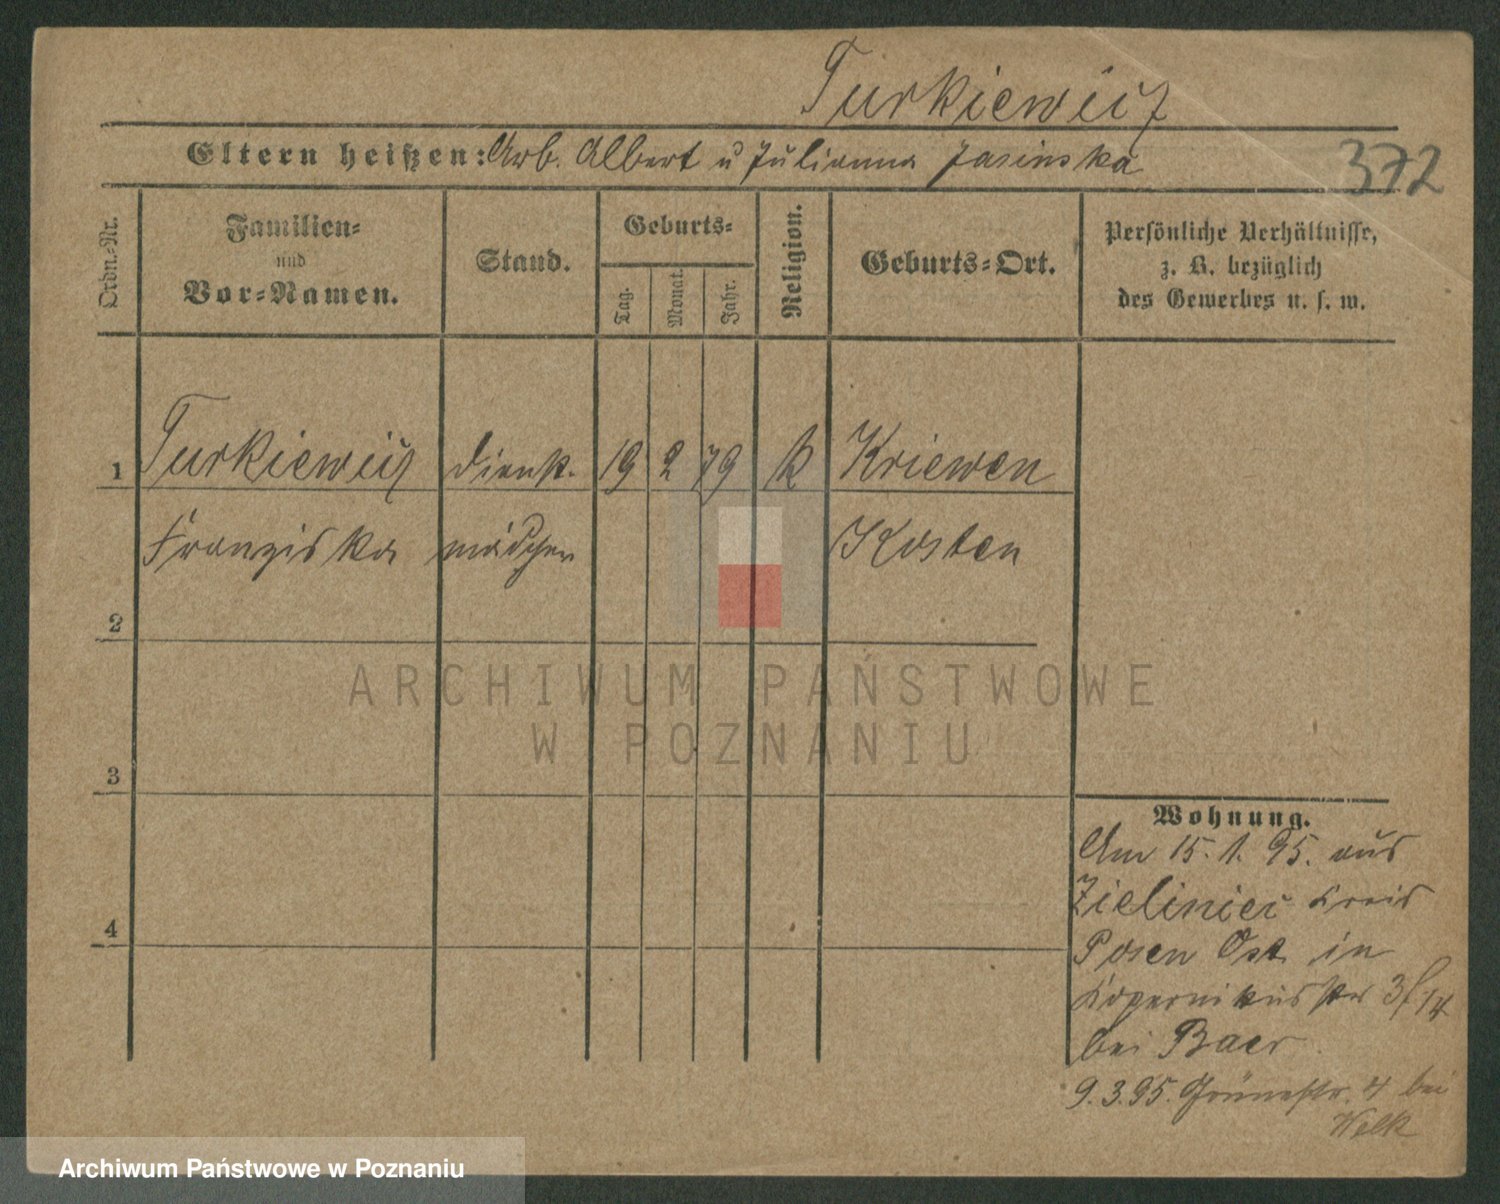 Turkiewicz
Eltern heißen: Arb. Albert u Julianna Jasinska
372
Ordn.-Nr.
Familien-
und
Vor-Namen.
Stand.
Geburts-
Tag.
Monat.
Jahr.
Religion.
Geburts-Ort.
Persönliche Verhältnisse,
z. B. bezüglich
des Gewerbes u. s. w.
1 Turkiewicz Dienst- 19 2 79 k Kriewen
Franziska mädchen Kosten
2
3
4
Wohnung.
Am 15. 1. 95. aus
Zieliniec Kreis
Posen Ost in
Kopernikusstr 3/14
bei Baer
9.3.95. Grünestr. 4 bei
Welk
ARCHIWUM PAŃSTWOWE
W POZNANIU
Archiwum Państwowe w Poznaniu